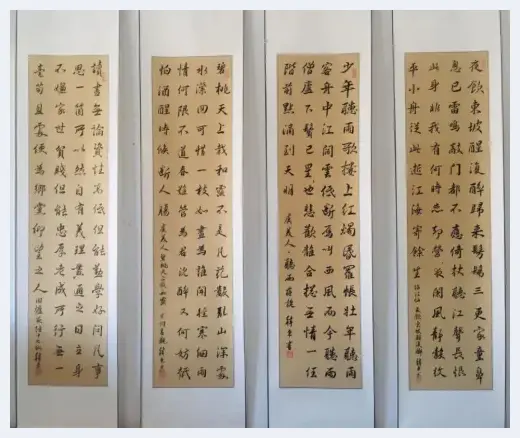 夜飲東坡醒復醉歸來髣髴三更家童鼻
息已雷鳴敲門都不應倚杖聽江聲長恨
此身非我有何時忘卻營營夜闌風靜縠紋
平小舟從此逝江海寄餘生 臨江仙
少年聽雨歌樓上紅燭昏羅帳壯年聽雨
客舟中江闊雲低斷雁叫西風而今聽雨
僧廬下鬢已星星也悲歡離合總無情一任
階前點滴到天明 虞美人 聽雨 蔣捷
碧桃天上栽和露不是凡花數亂山深處
水縈回可惜一枝如畫為誰開輕寒細雨
情何限不道春難管為君沉醉又何妨祇
怕酒醒時候斷人腸 虞美人 碧桃天上栽和露
讀書無論資性高低但能勤學好問凡事
思一箇所以然自有義理貫通之日立身
不嫌家世貧賤但能忠厚老成所行無一
毫苟且處便為鄉黨仰望之人